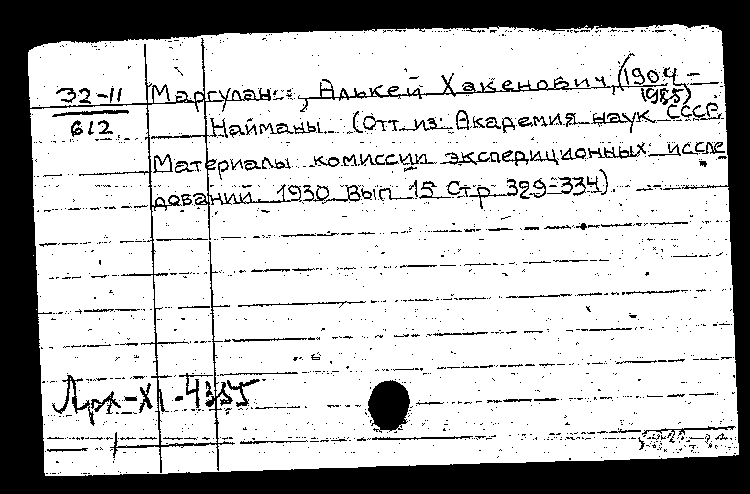 32-11
612
Маргулан, Алькей Хакенович, (1904-
1985)
Найманы (Отт. из: Академия наук СССР.
Материалы комиссии экспедиционных иссле
дований. 1930 Вып 15 Стр 329-334).